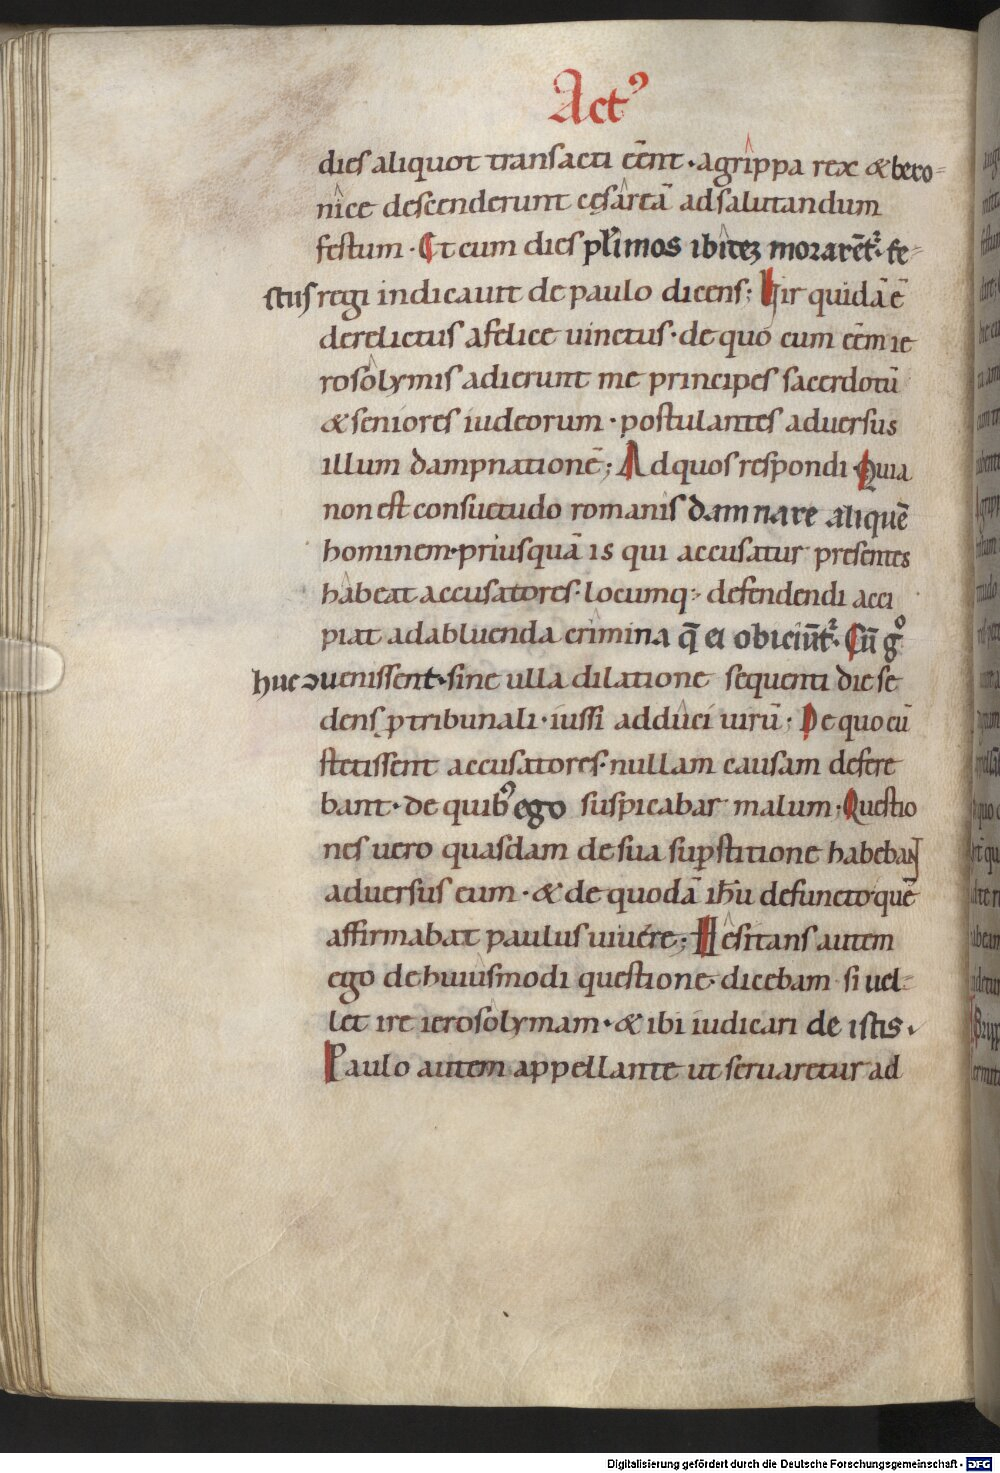 Actꝰ
dies aliquot transacti eēnt · agrippa rex & bero-
nice descenderunt cęsareā ad salutandum
festum · Et cum dies plꝛ̄imos ibi itez moraren̄tꝛ · fe-
stus regi indicauit de paulo dicens: Uir quidā ē
derelictus a felice uinctus · de quo cum eēm ie
rosolymis adierunt me principes sacerdotū
& seniores iudeorum · postulantes aduersus
illum dampnationē; Ad quos respondi Quia
non est consuetudo romanis damnare aliquē
hominem · priusquā is qui accusatur presentes
habeat accusatores · locumq; defendendi acci
piat ad abluenda crimina q̄ ei obiciūtꝛ · Cū gͦ
huc ꝯuenissent · sine ulla dilatione sequenti die se
dens ꝓ tribunali · iussi adduci uirū · De quo cū
stetissent accusatores · nullam causam defere
bant · de quibꝰ ego suspicabar malum; Questio
nes uero quasdam de sua suꝑstitione habebant
aduersus eum · & de quodā ih̄u defuncto · quē
affirmabat paulus uiuere; Hesitans autem
ego de huiusmodi questione · dicebam si uel-
let ire ierosolymam · & ibi iudicari de istis ·
Paulo autem appellante ut seruaretur ad
Digitalisierung gefördert durch die Deutsche Forschungsgemeinschaft - DFG